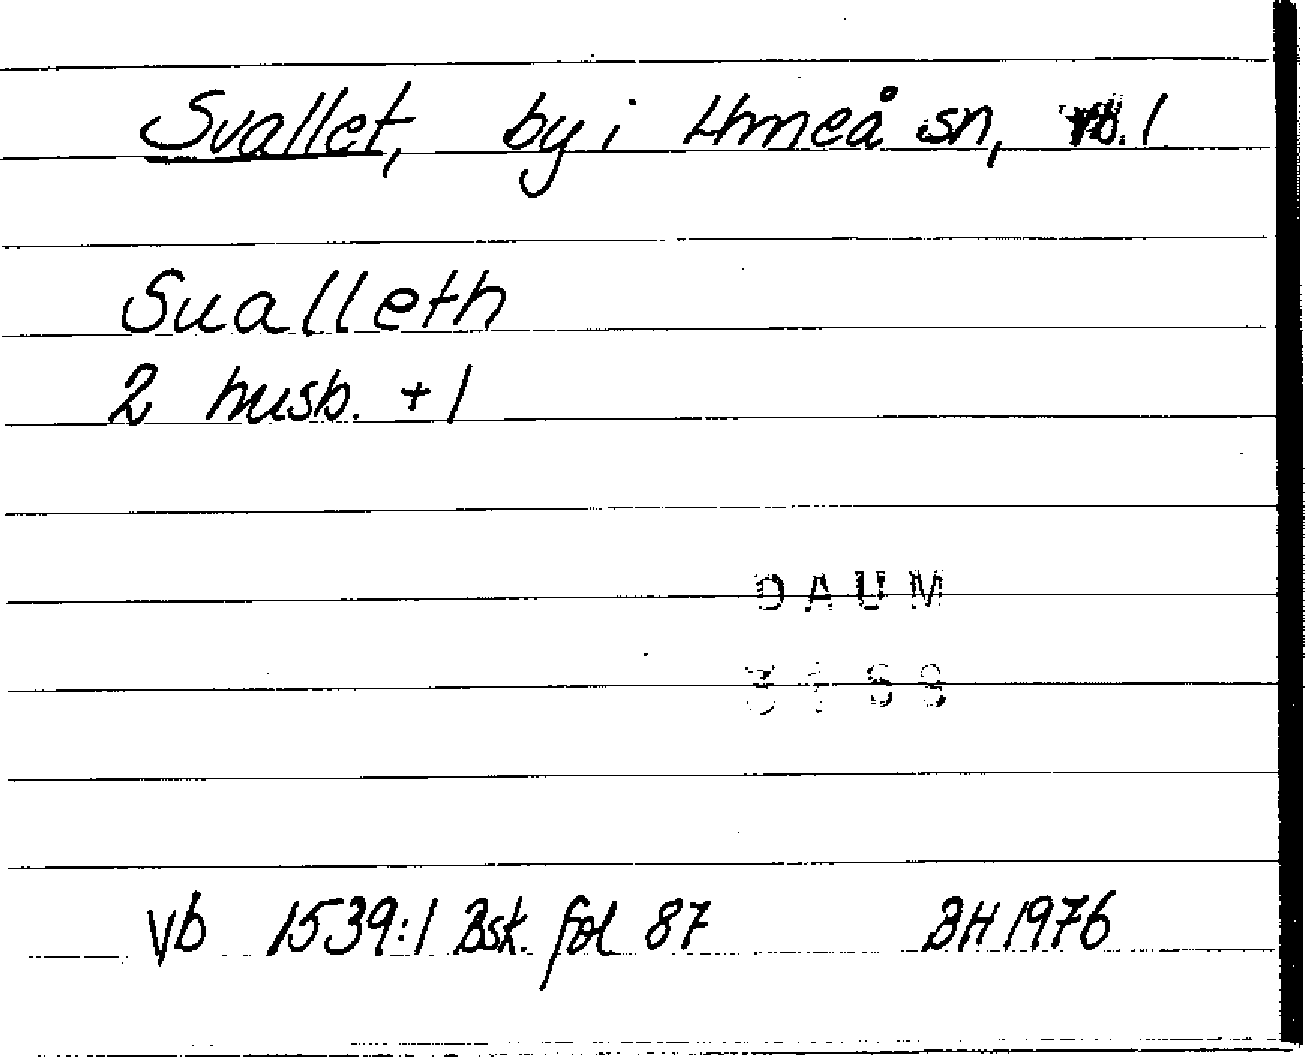 Svallet, by i Umeå sn, Vb. 1
Sualleth
2 husb. + 1
DAUM
Vb 1539:1 Bsk. fol 87 BH 1976